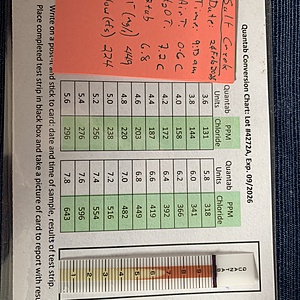 Quantab Conversion Chart: Lot #4272A, Exp. 09/2026
Salt Creek
7.2 C
6.8
449
274
Quantab Units PPM Chloride
3.6 131
3.8 144
4.0 158
4.2 172
4.4 187
4.6 203
4.8 220
5.0 238
5.2 256
5.4 276
5.6 296
Quantab Units PPM Chloride
5.8 318
6.0 341
6.2 366
6.4 392
6.6 419
6.8 449
7.0 482
7.2 516
7.4 554
7.6 596
7.8 643
QUANTAB
Write on a and stick to card: date and time of sample, results of test strip.
Place completed test strip in black box and take a picture of card to report with